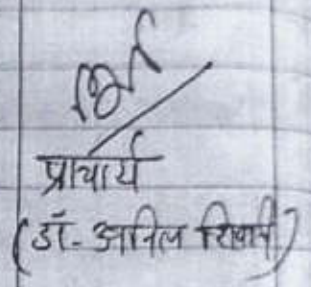 प्राचार्य
(डॉ- अनिल तिवारी)